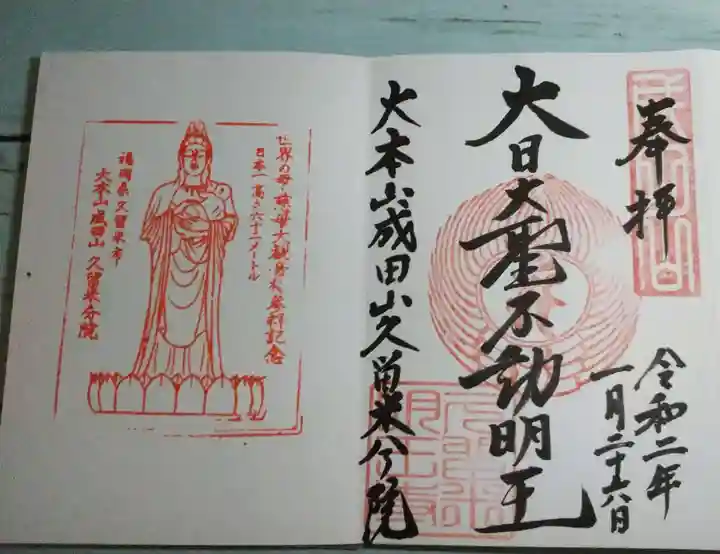 奉拝
令和二年
一月二十六日
大日大聖不動明王
大本山成田山久留米分院
世界の母慈母大観音参拝記念
日本一高さ六十二メートル
福岡県久留米市
大本山成田山久留米分院